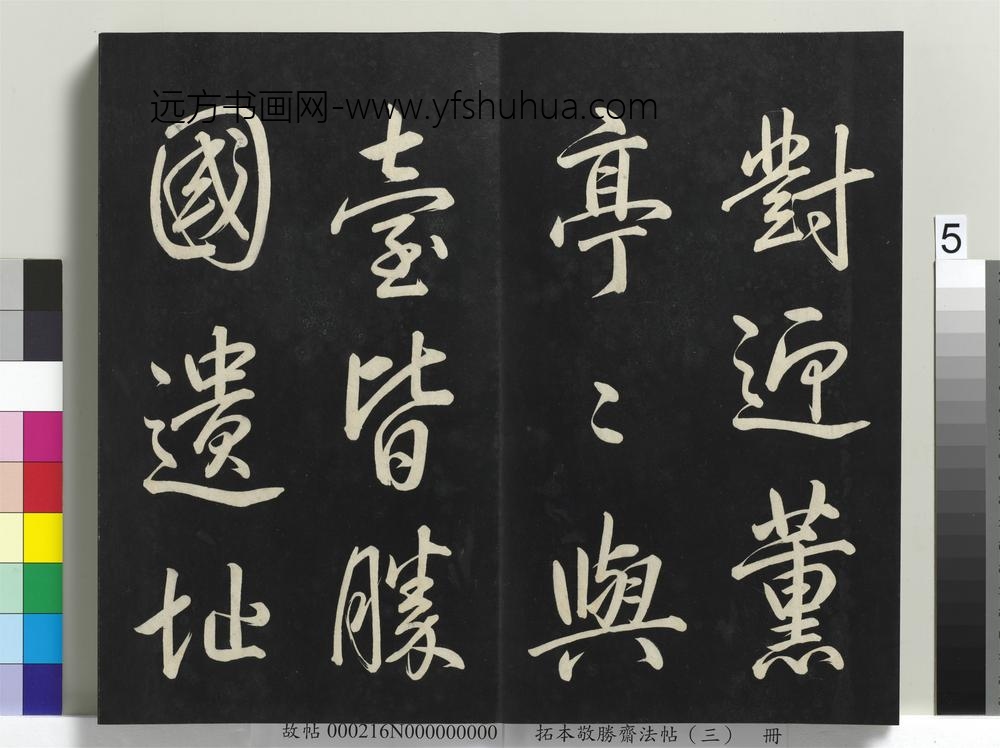 對近薰
亭〻與
臺皆勝
國遺址
远方书画网-www.yfshuhua.com
5
故帖 000216N000000000 拓本敬勝齋法帖（三） 冊